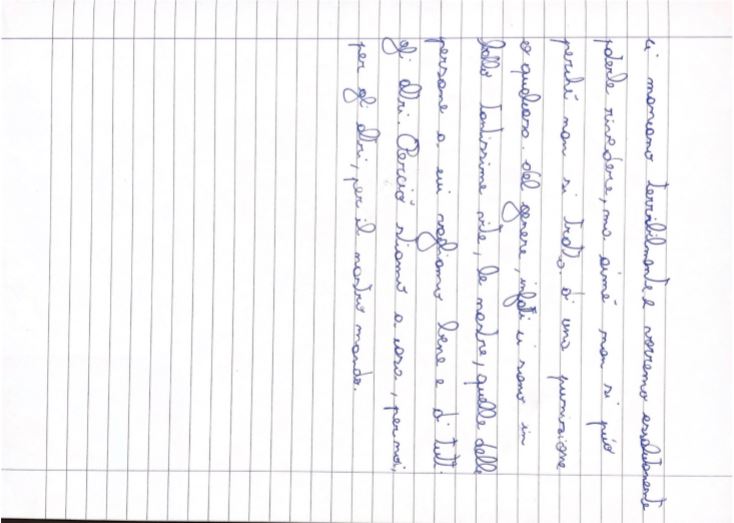 ci mancano terribilmente e vorremo assolutamente
poterle rivedere, ma aimé non si può
perché non si tratta di una punizione
o qualcosa del genere, infatti ci sono in
ballo tantissime vite, le nostre, quelle delle
persone a cui vogliamo bene e di tutti
gli altri. Perciò stiamo a casa, per noi,
per gli altri, per il nostro mondo.